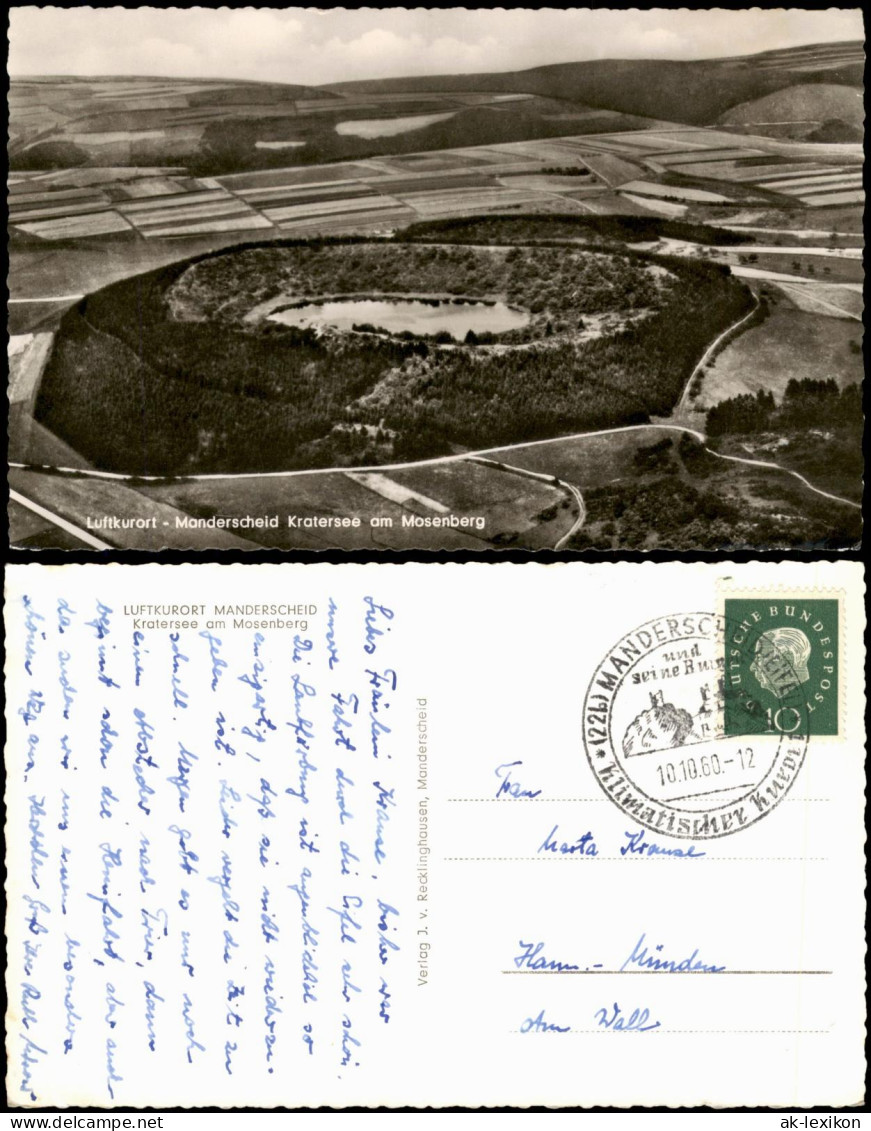 Luftkurort - Manderscheid Kratersee am Mosenberg
LUFTKURORT MANDERSCHEID
Kratersee am Mosenberg
Liebes Fräulein Krause, bisher war
unsere Fahrt durch die Eifel sehr schön.
Die Laubfärbung ist augenblicklich so
einzigartig, daß sie nicht wiederzu-
geben ist. Leider vergeht die Zeit zu
schnell. Morgen geht es nur noch
einen Abstecher nach Trier, dann
beginnt schon die Heimfahrt, aber auch
da suchen wir uns einen besonders
schönen Weg aus. Herzlichen Gruß Ihre
Verlag J. v. Recklinghausen, Manderscheid
(22b) MANDERSCHEID/EIFEL
und
seine Burgen
10.10.60.-12
Klimatischer Kurort
DEUTSCHE BUNDESPOST
10
Frau
Marta Krause
Hann.- Münden
Am Wall
ak-lexikon
DELCAMPE.NET